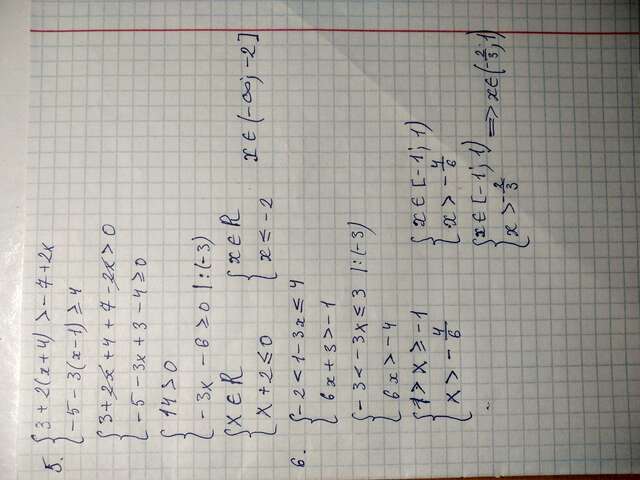 5. { 3+2(x+4) > -7+2x
{ -5-3(x-1) ≥ 4
{ 3+2x+4+7-2x > 0
{ -5-3x+3-4 ≥ 0
{ 14 > 0
{ -3x-6 ≥ 0 |:(-3)
{ x ∈ R
{ x+2 ≤ 0
{ x ∈ R
{ x ≤ -2
x ∈ (-∞; -2]
6. { -2 < 1-3x ≤ 4
{ 6x+3 > -1
{ -3 < -3x ≤ 3 |:(-3)
{ 6x > -4
{ 1 > x ≥ -1
{ x > -4/6
{ x ∈ [-1; 1)
{ x > -4/6
{ x ∈ [-1; 1)
{ x > -2/3
=> x ∈ (-2/3; 1)